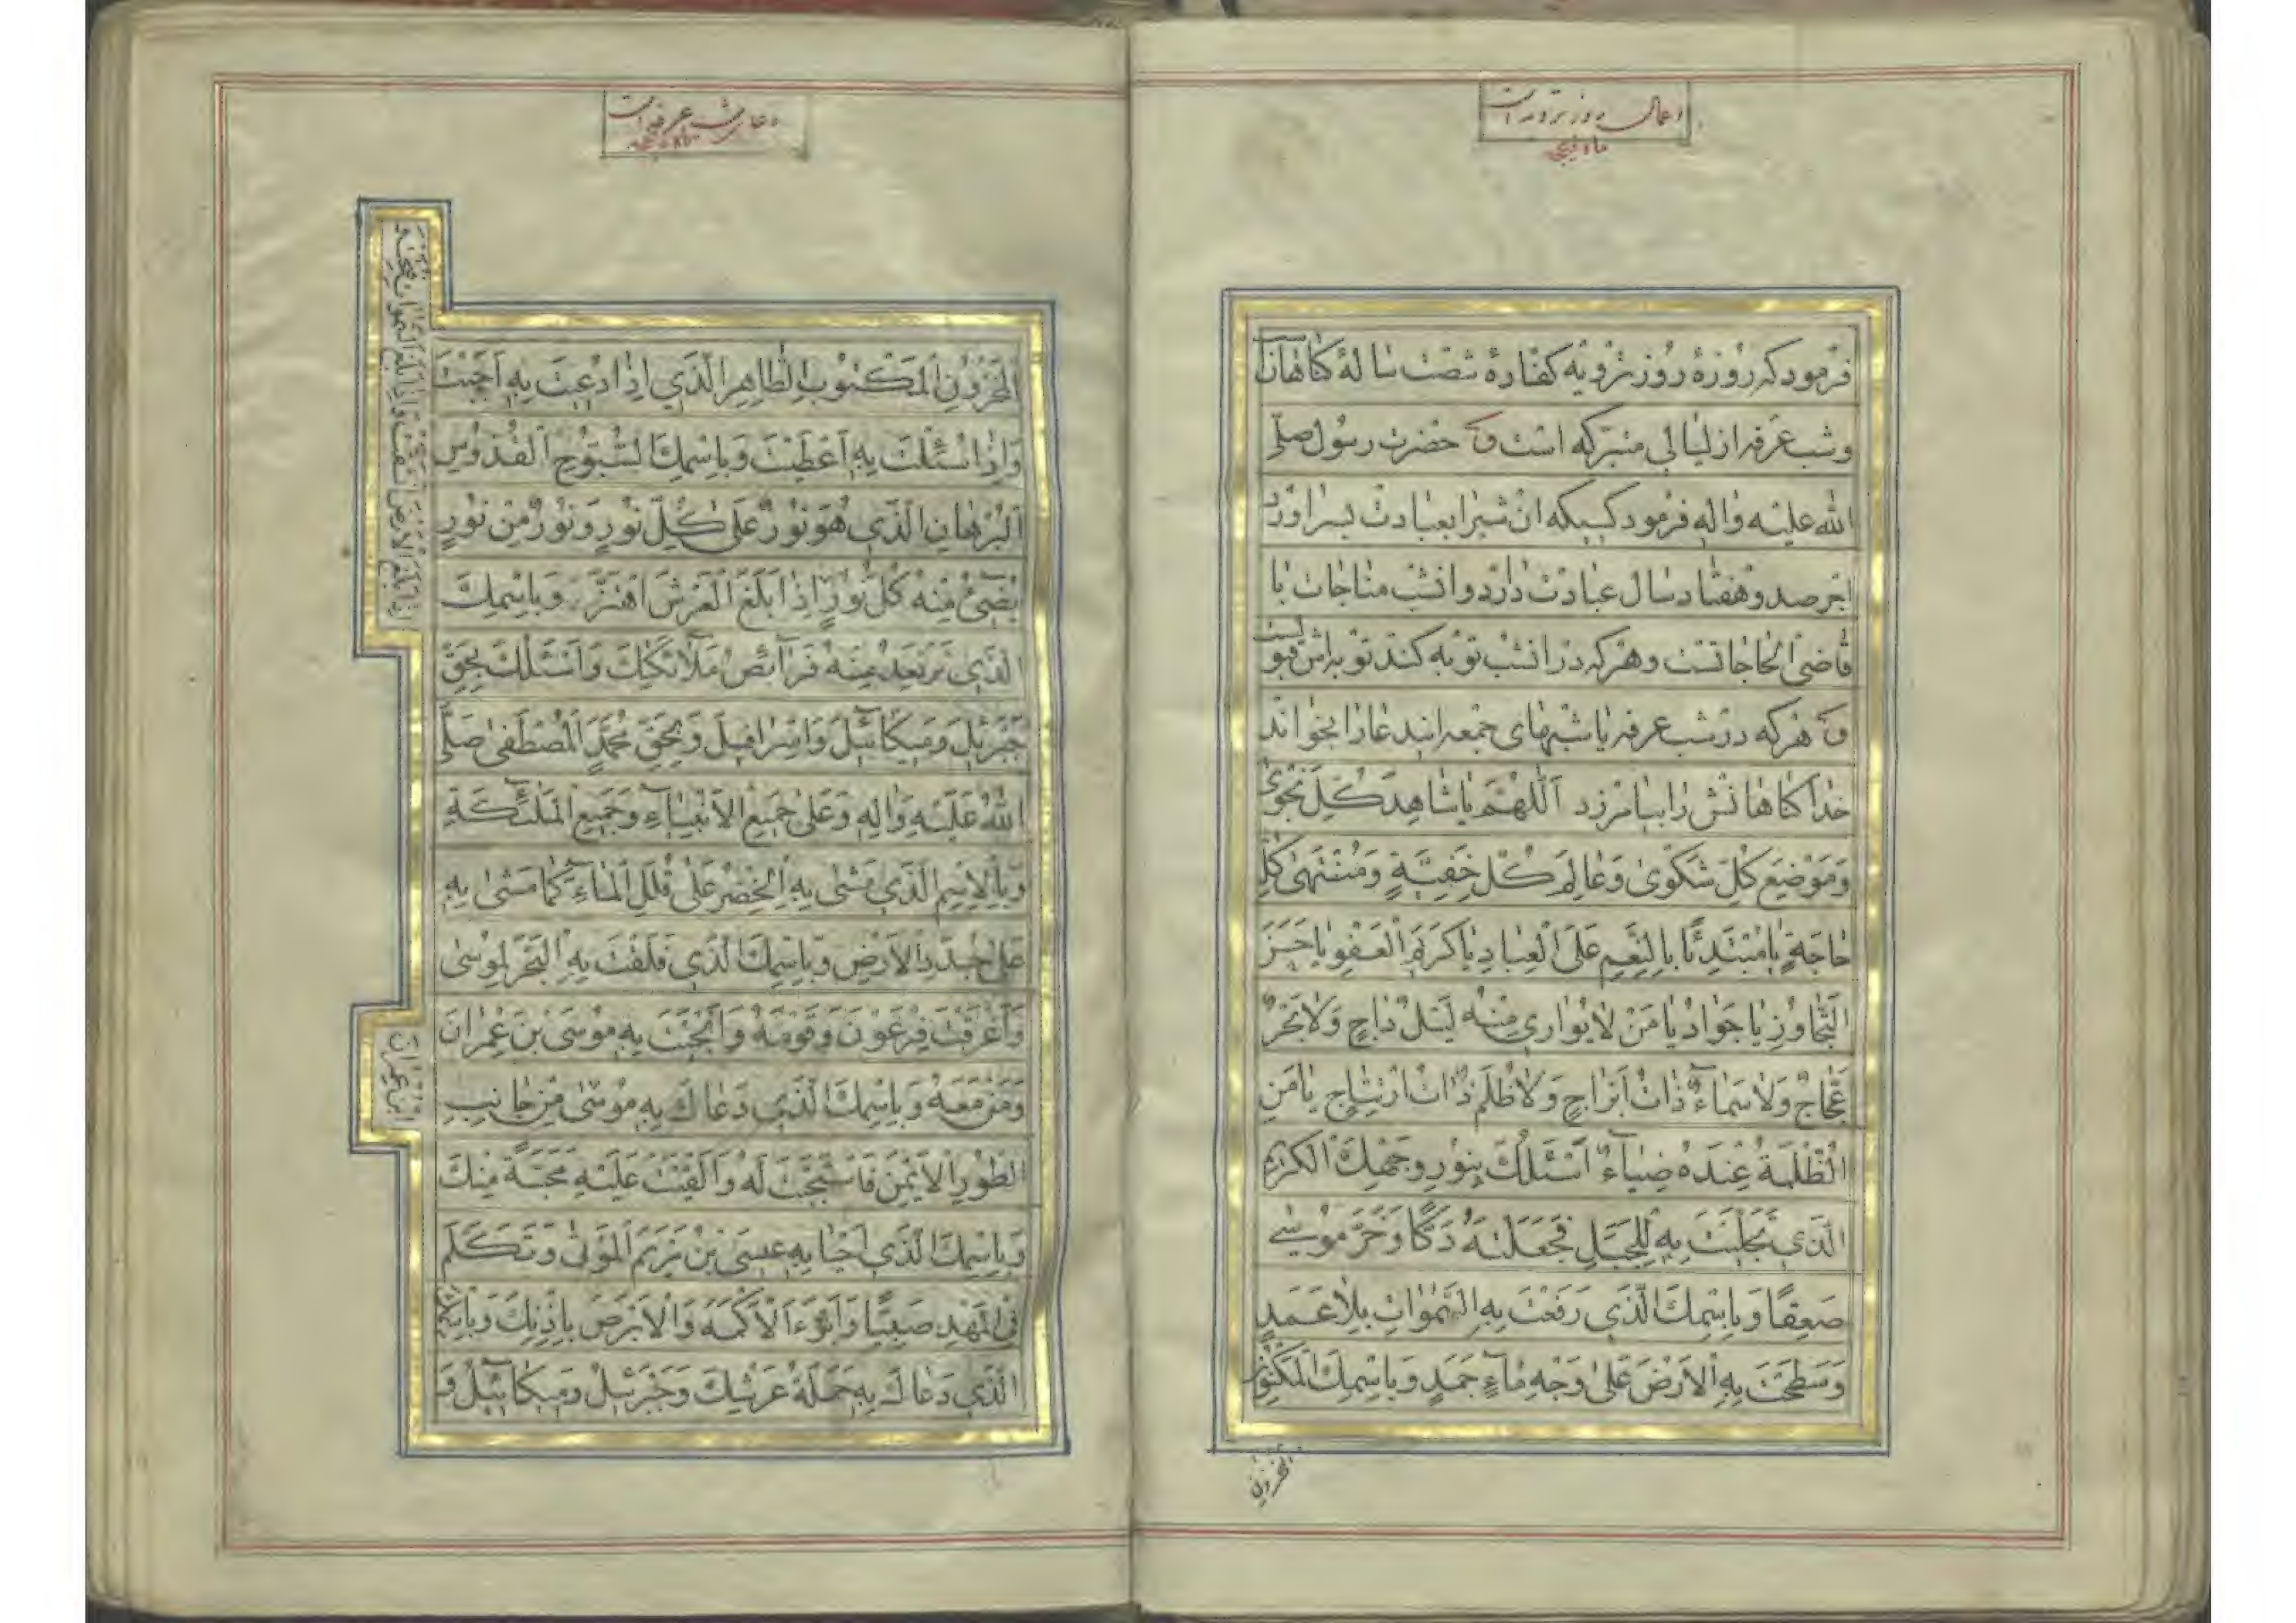 اعمال روز ترویه است
ماه ذیحجه
فرمود که روزهٔ روز ترویه کفّارهٔ شصت سالهٔ کناهان
وشب عرفه از لیالی متبرّکه است حضرت رسول صلّی
الله علیه واله فرمود کسیکه ان شبرا بعبادت بسر اورد
اجر صد وهفتاد سال عبادت دارد وانشب مناجات با
قاضی الحاجاتست وهرکه در انشب توبه کند توبه اش قبولست
هرکه در شب عرفه یا شبهای جمعه ایندعا را بخواند
خدا کناهانش را بیامرزد اَللّٰهُمَّ یَا شَاهِدَ کُلِّ نَجْوٰی
وَمَوْضِعَ کُلِّ شَکْوٰی وَعَالِمَ کُلِّ خَفِیَّةٍ وَمُنْتَهٰی کُلِّ
حَاجَةٍ یَا مُبْتَدِئًا بِالنِّعَمِ عَلَی الْعِبَادِ یَا کَرِیمَ الْعَفْوِ یَا حَسَنَ
التَّجَاوُزِ یَا جَوَادُ یَا مَنْ لَا یُوَارِی مِنْهُ لَیْلٌ دَاجٍ وَلَا بَحْرٌ
عَجَّاجٌ وَلَا سَمَاءٌ ذَاتُ اَبْرَاجٍ وَلَا ظُلَمٌ ذَاتُ ارْتِتَاجٍ یَا مَنِ
الظُّلْمَةُ عِنْدَهُ ضِیَاءٌ اَسْئَلُکَ بِنُورِ وَجْهِکَ الْکَرِیمِ
الَّذِی تَجَلَّیْتَ بِهِ لِلْجَبَلِ فَجَعَلْتَهُ دَکًّا وَخَرَّ مُوسٰی
صَعِقًا وَبِاسْمِکَ الَّذِی رَفَعْتَ بِهِ السَّمٰوَاتِ بِلَا عَمَدٍ
وَسَطَحْتَ بِهِ الْاَرْضَ عَلٰی وَجْهِ مَاءٍ جَمَدٍ وَبِاسْمِکَ الْمَکْنُونِ
المخزون
دعای شب عرفه است
ماه ذیحجه
الْمَخْزُونِ الْمَکْتُوبِ الطَّاهِرِ الَّذِی اِذَا دُعِیتَ بِهِ اَجَبْتَ
وَاِذَا سُئِلْتَ بِهِ اَعْطَیْتَ وَبِاسْمِکَ السُّبُّوحِ الْقُدُّوسِ
الْبُرْهَانِ الَّذِی هُوَ نُورٌ عَلٰی کُلِّ نُورٍ وَنُورٌ مِنْ نُورٍ
یُضِیءُ مِنْهُ کُلُّ نُورٍ اِذَا بَلَغَ الْعَرْشَ اهْتَزَّ وَبِاسْمِکَ
اِذَا بَلَغَ الْاَرْضَ انْشَقَّتْ وَاِذَا بَلَغَ السَّمٰوَاتِ فُتِحَتْ وَ
الَّذِی تَرْتَعِدُ مِنْهُ فَرَائِصُ مَلَائِکَتِکَ وَاَسْئَلُکَ بِحَقِّ
جَبْرَئِیلَ وَمِیکَائِیلَ وَاِسْرَافِیلَ وَبِحَقِّ مُحَمَّدٍ الْمُصْطَفٰی صَلَّی
اللّٰهُ عَلَیْهِ وَاٰلِهِ وَعَلٰی جَمِیعِ الْاَنْبِیَاءِ وَجَمِیعِ الْمَلٰئِکَةِ
وَبِالْاِسْمِ الَّذِی مَشٰی بِهِ الْخِضْرُ عَلٰی قُلَلِ الْمَاءِ کَمَا مَشٰی بِهِ
عَلٰی جَدَدِ الْاَرْضِ وَبِاسْمِکَ الَّذِی فَلَقْتَ بِهِ الْبَحْرَ لِمُوسٰی
وَاَغْرَقْتَ فِرْعَوْنَ وَقَوْمَهُ وَاَنْجَیْتَ بِهِ مُوسَی بْنَ عِمْرَانَ
وَمَنْ مَعَهُ وَبِاسْمِکَ الَّذِی دَعَاکَ بِهِ مُوسٰی مِنْ جَانِبِ
ابن عمران
الطُّورِ الْاَیْمَنِ فَاسْتَجَبْتَ لَهُ وَاَلْقَیْتَ عَلَیْهِ مَحَبَّةً مِنْکَ
وَبِاسْمِکَ الَّذِی اَحْیَا بِهِ عِیسَی بْنُ مَرْیَمَ الْمَوْتٰی وَتَکَلَّمَ
فِی الْمَهْدِ صَبِیًّا وَاَبْرَءَ الْاَکْمَهَ وَالْاَبْرَصَ بِاِذْنِکَ وَبِاسْمِکَ
الَّذِی دَعَاکَ بِهِ حَمَلَةُ عَرْشِکَ وَجَبْرَئِیلُ وَمِیکَائِیلُ وَ